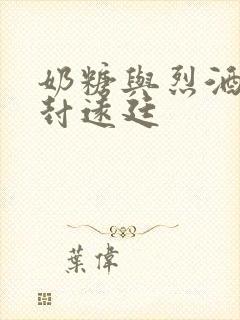 奶糖與烈酒
封遠廷
葉偉